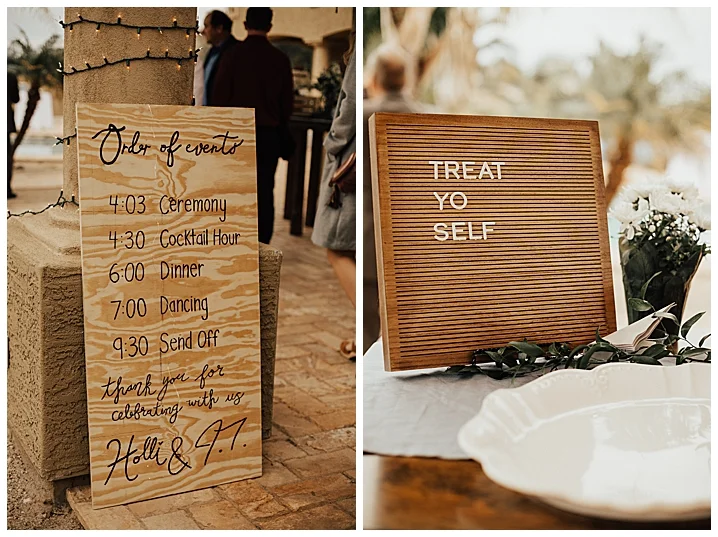 Order of events
4:03 Ceremony
4:30 Cocktail Hour
6:00 Dinner
7:00 Dancing
9:30 Send Off
thank you for
celebrating with us
Holli & J.T.
TREAT
YO
SELF